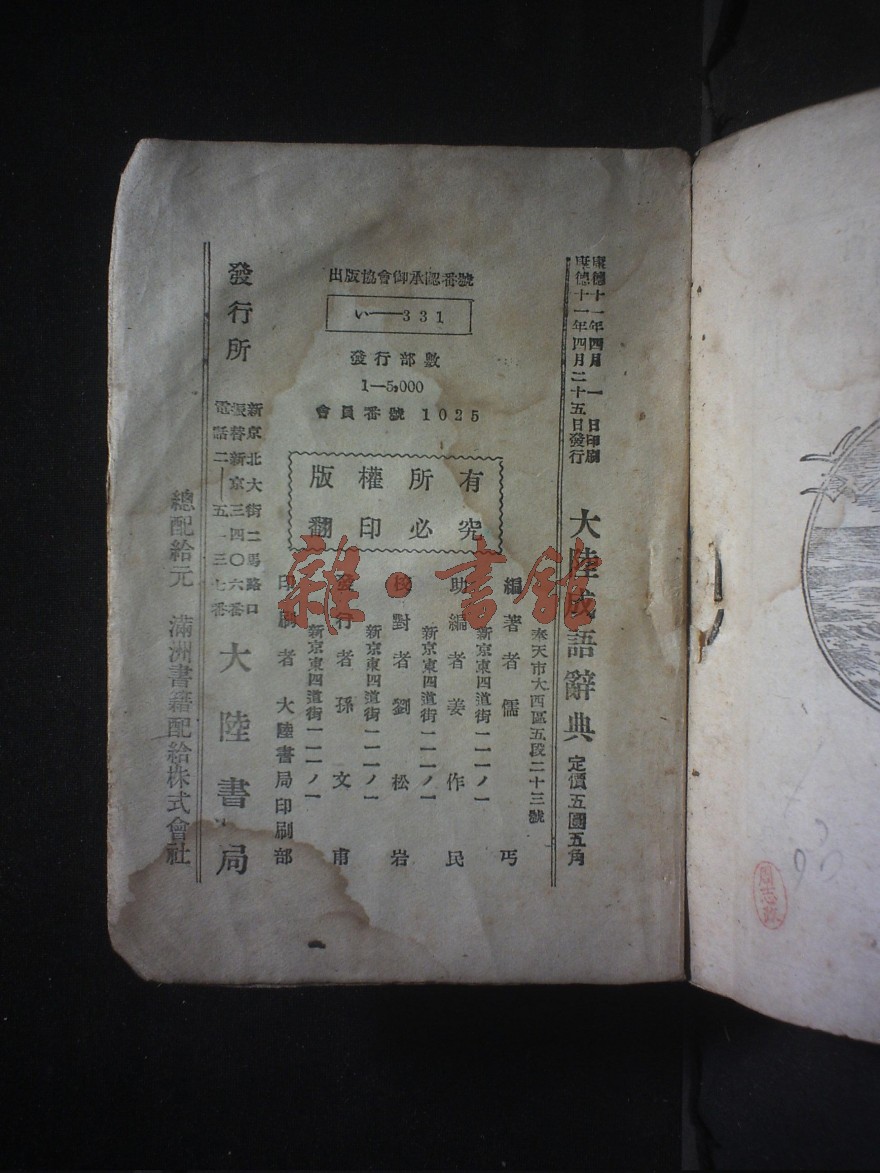 康德十一年四月一日印刷
康德十一年四月二十五日發行
大陸成語辭典 定價五圓五角
奉天市大西區五段二十三號
編著者 儒丐
新京東四道街一一一ノ一
助編者 姜作民
新京東四道街一一一ノ一
校對者 劉松岩
新京東四道街一一一ノ一
發行者 孫文甫
新京東四道街一一一ノ一
印刷者 大陸書局印刷部
出版協會御承認番號
い—331
發行部數
1—5,000
會員番號 1025
版權所有
翻印必究
發行所
新京北大街二馬路口
振替新京三四〇六番
電話二—五一三七番
大陸書局
總配給元 滿洲書籍配給株式會社
雜·書館